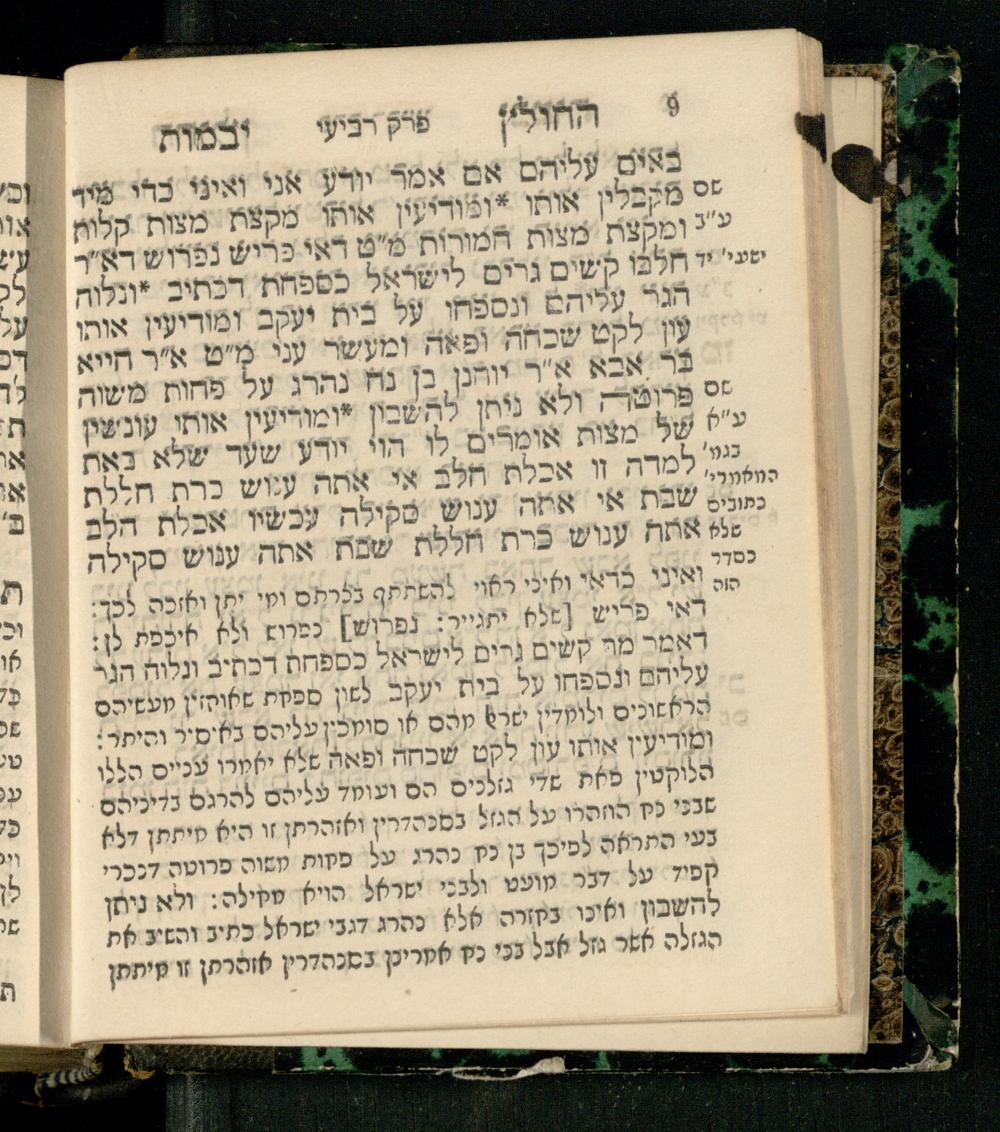 9 החולץ פרק רביעי יבמות
באים עליהם אם אמר יודע אני ואיני כדי מיד
שם מקבלין אותו *ומודיעין אותו מקצת מצות קלות
ע"ב ומקצת מצות חמורות מ"ט דאי פריש נפרוש דא"ר
ישעי' יד חלבו קשים גרים לישראל כספחת דכתיב *ונלוה
הגר עליהם ונספחו על בית יעקב ומודיעין אותו
עון לקט שכחה ופאה ומעשר עני מ"ט א"ר חייא
בר אבא א"ר יוחנן בן נח נהרג על פחות משוה
שם פרוטה ולא ניתן להשבון *ומודיעין אותו עונשין
ע"א של מצות אומרים לו הוי יודע שעד שלא באת
בגמ' למדה זו אכלת חלב אי אתה ענוש כרת חללת
המאמרי' שבת אי אתה ענוש סקילה עכשיו אכלת חלב
כתובים אתה ענוש כרת חללת שבת אתה ענוש סקילה
שלא
כסדר
הזה
ואיני כדאי ואיני ראוי להשתתף בצרתם ומי יתן ואזכה לכך:
דאי פריש [שלא יתגייר: נפרוש] כפרוש ולא איכפת לן:
דאמר מר קשים גרים לישראל כספחת דכתיב ונלוה הגר
עליהם ונספחו על בית יעקב לשון ספחת שאוחזין מעשיהם
הראשונים ולומדין ישראל מהם או סומכין עליהם באיסור והיתר:
ומודיעין אותו עון לקט שכחה ופאה שלא יאמרו עניים הללו
הלוקטין פאת שדי גזלנים הם ועומד עליהם להרגם בדיניהם
שבני נח הוזהרו על הגזל בסנהדרין ואזהרתן זו היא מיתתן דלא
בעי התראה לפיכך בן נח נהרג על פחות משוה פרוטה דנכרי
קפיד על דבר מועט ולבני ישראל הויא מחילה: ולא ניתן
להשבון ואינו בחזרה אלא נהרג דגבי ישראל כתיב והשיב את
הגזלה אשר גזל אבל בני נח אמרינן בסנהדרין אזהרתן זו מיתתן